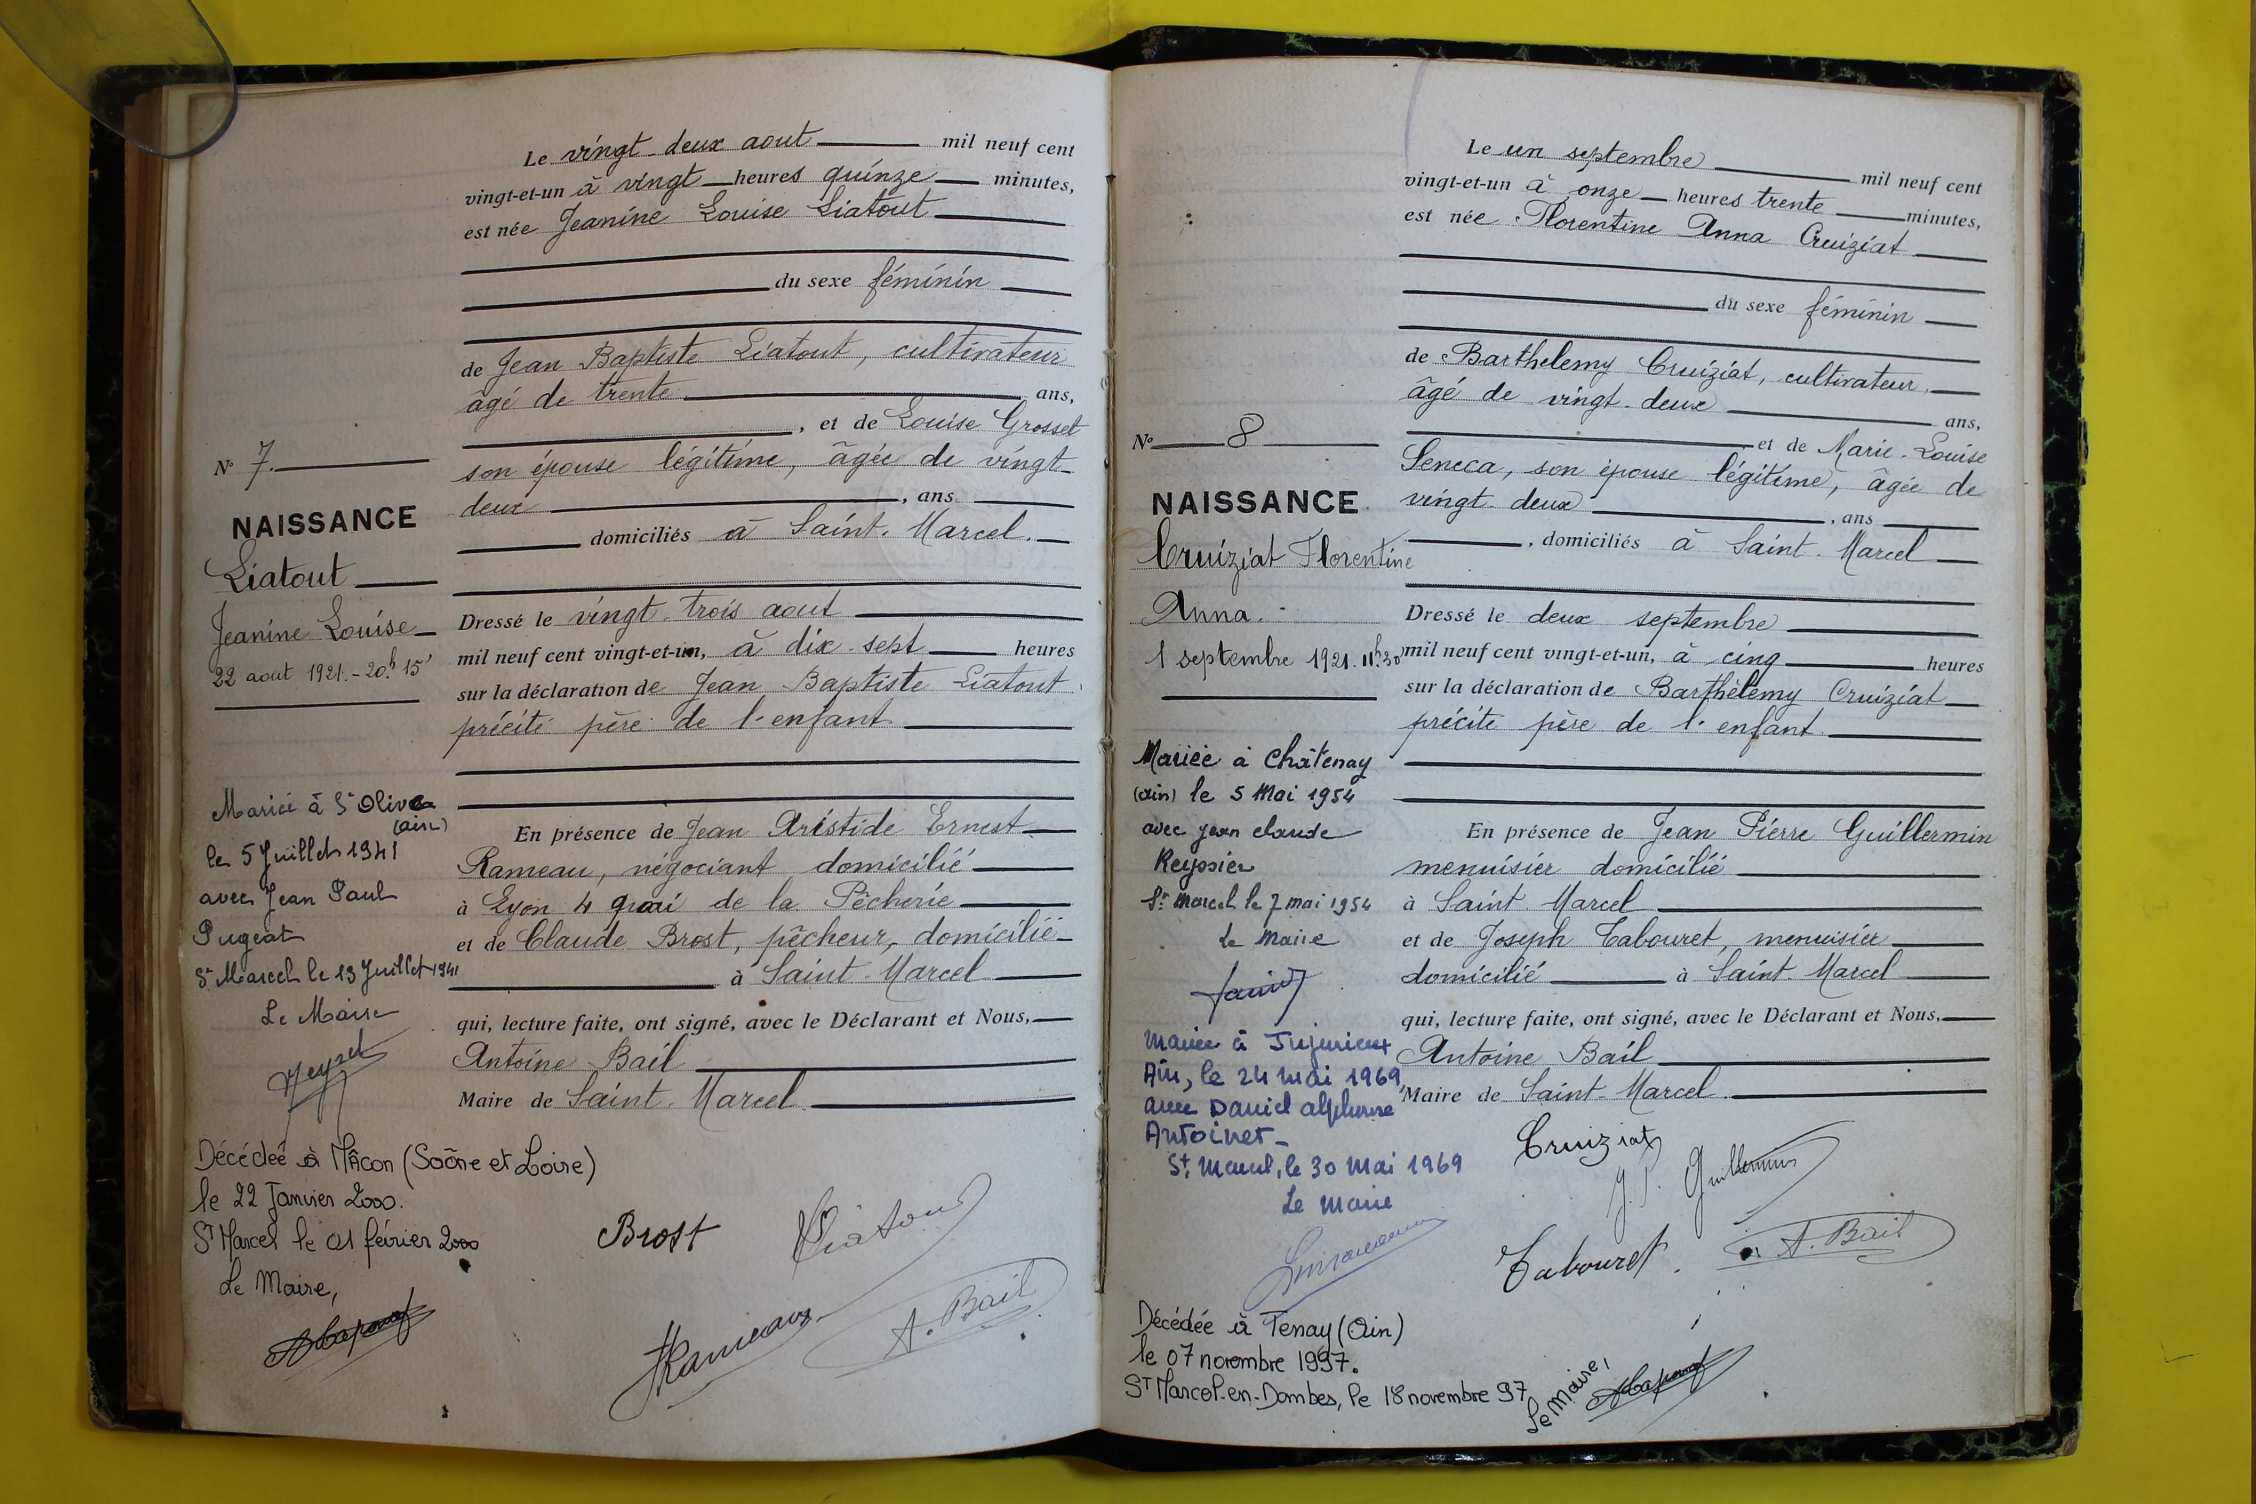 Le vingt-deux aout mil neuf cent
vingt-et-un à vingt heures quinze minutes,
est née Jeanine Louise Liatout
du sexe féminin
de Jean Baptiste Liatout, cultivateur
âgé de trente ans,
, et de Louise Grosset
son épouse légitime, âgée de vingt-
deux , ans
domiciliés à Saint-Marcel.
Dressé le vingt-trois aout
mil neuf cent vingt-et-un, à dix-sept heures
sur la déclaration de Jean Baptiste Liatout
précité père de l'enfant
En présence de Jean Aristide Ernest
Rameau, négociant domicilié
à Lyon 4 quai de la Pêcherie
et de Claude Brost, pêcheur, domicilié
à Saint-Marcel
qui, lecture faite, ont signé, avec le Déclarant et Nous,
Antoine Bail
Maire de Saint-Marcel
N° 7.
NAISSANCE
Liatout
Jeanine Louise
22 aout 1921.-20h 15'
Mariée à St Olive
(ain)
le 5 Juillet 1941
avec Jean Paul
Pugeat
St Marcel le 13 Juillet 1941
Le Maire
Décédée à Mâcon (Saône et Loire)
le 22 Janvier 2000.
St Marcel le 01 février 2000
Le Maire,
Brost Liatout
Rameau A. Bail
Le un septembre mil neuf cent
vingt-et-un à onze heures trente minutes,
est née Florentine Anna Cruiziat
du sexe féminin
de Barthelemy Cruiziat, cultivateur
âgé de vingt-deux ans,
et de Marie-Louise
Seneca, son épouse légitime, âgée de
vingt-deux , ans
, domiciliés à Saint-Marcel
Dressé le deux septembre
mil neuf cent vingt-et-un, à cinq heures
sur la déclaration de Barthèlemy Cruiziat
précité père de l'enfant
En présence de Jean Pierre Guillermin
menuisier domicilié
à Saint-Marcel
et de Joseph Tabouret, menuisier
domicilié à Saint-Marcel
qui, lecture faite, ont signé, avec le Déclarant et Nous,
Antoine Bail
Maire de Saint-Marcel
N° 8
NAISSANCE
Cruiziat Florentine
Anna.
1 septembre 1921. 11h.30
Mariée à Châtenay
(ain) le 5 Mai 1954
avec jean claude
Reyssier
St Marcel le 7 mai 1954
Le Maire
Mariée à Jujurieux
Ain, le 24 mai 1969,
avec Daniel alphonse
Antoinet-
St Marcel, le 30 Mai 1969
Le Maire
Décédée à Tenay (Ain)
le 07 novembre 1997.
ST Marcel-en-Dombes, le 18 novembre 97
Le Maire,
Cruiziat
J. P. Guillermin
Tabouret. A. Bail